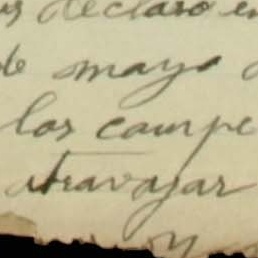 declaro en
de mayo
los campe
atravajar